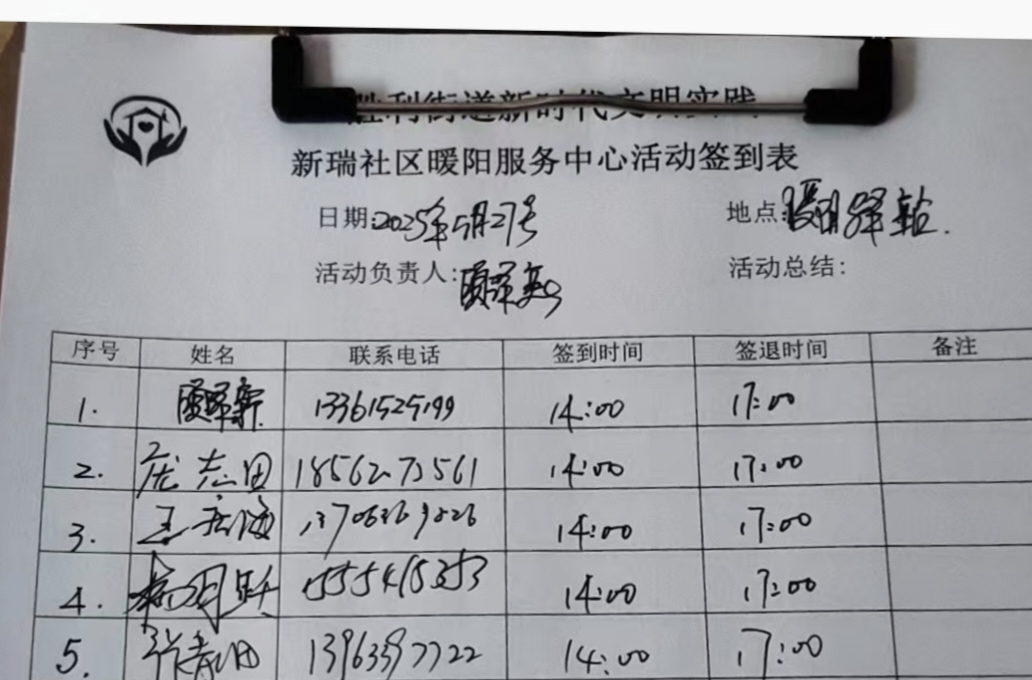 胜利街道新时代文明实践
新瑞社区暖阳服务中心活动签到表
日期:2025年5月27号 地点:暖阳驿站.
活动负责人: 活动总结:
序号 姓名 联系电话 签到时间 签退时间 备注
1. 13361525199 14:00 17:00
2. 庞志田 18562273561 14:00 17:00
3. 14:00 17:00
4. 14:00 17:00
5. 13963597722 14:00 17:00